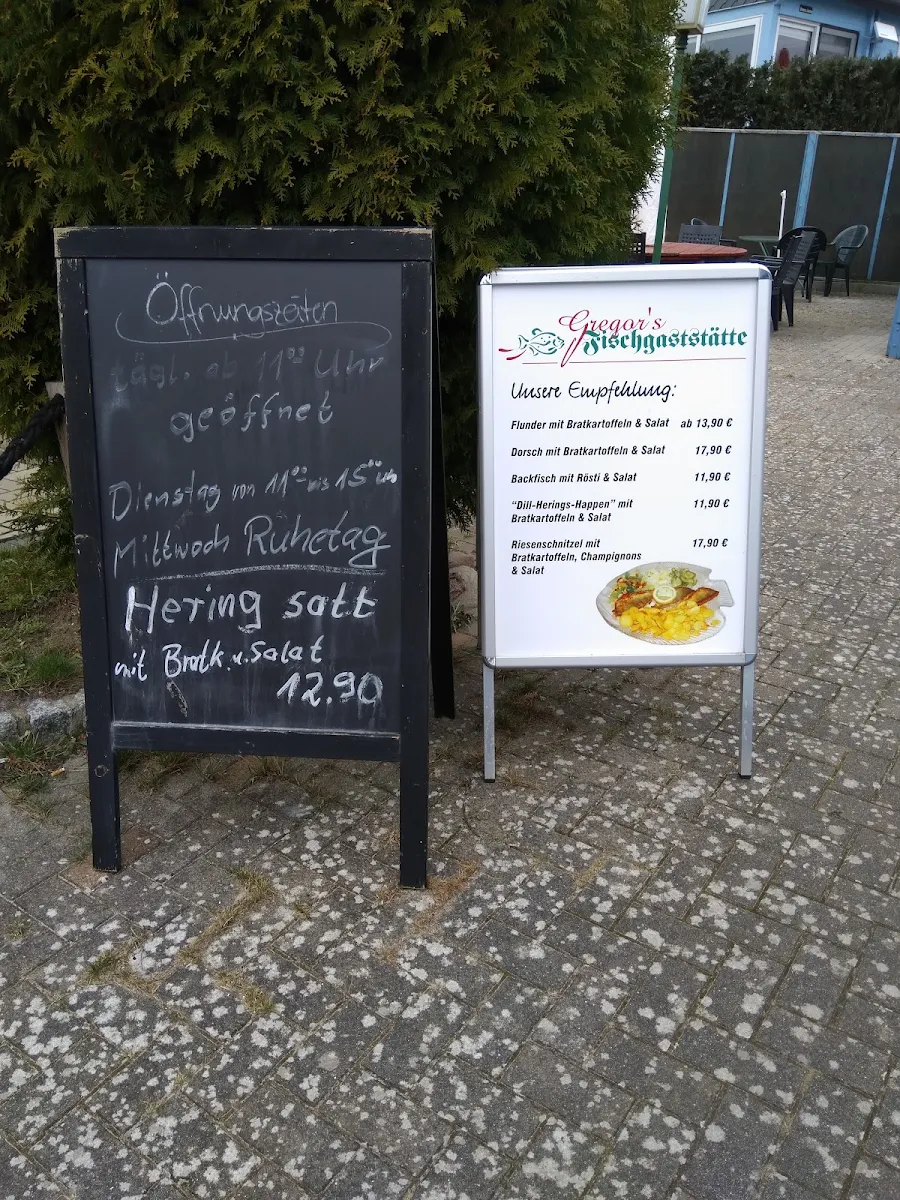 Öffnungszeiten
tägl. ab 11⁰⁰ Uhr
geöffnet
Dienstag von 11⁰⁰ bis 15⁰⁰ Uh
Mittwoch Ruhetag
Hering satt
mit Bratk. u. Salat
12.90
Gregor's
Fischgaststätte
Unsere Empfehlung:
Flunder mit Bratkartoffeln & Salat ab 13,90 €
Dorsch mit Bratkartoffeln & Salat 17,90 €
Backfisch mit Rösti & Salat 11,90 €
"Dill-Herings-Happen" mit 11,90 €
Bratkartoffeln & Salat
Riesenschnitzel mit 17,90 €
Bratkartoffeln, Champignons
& Salat